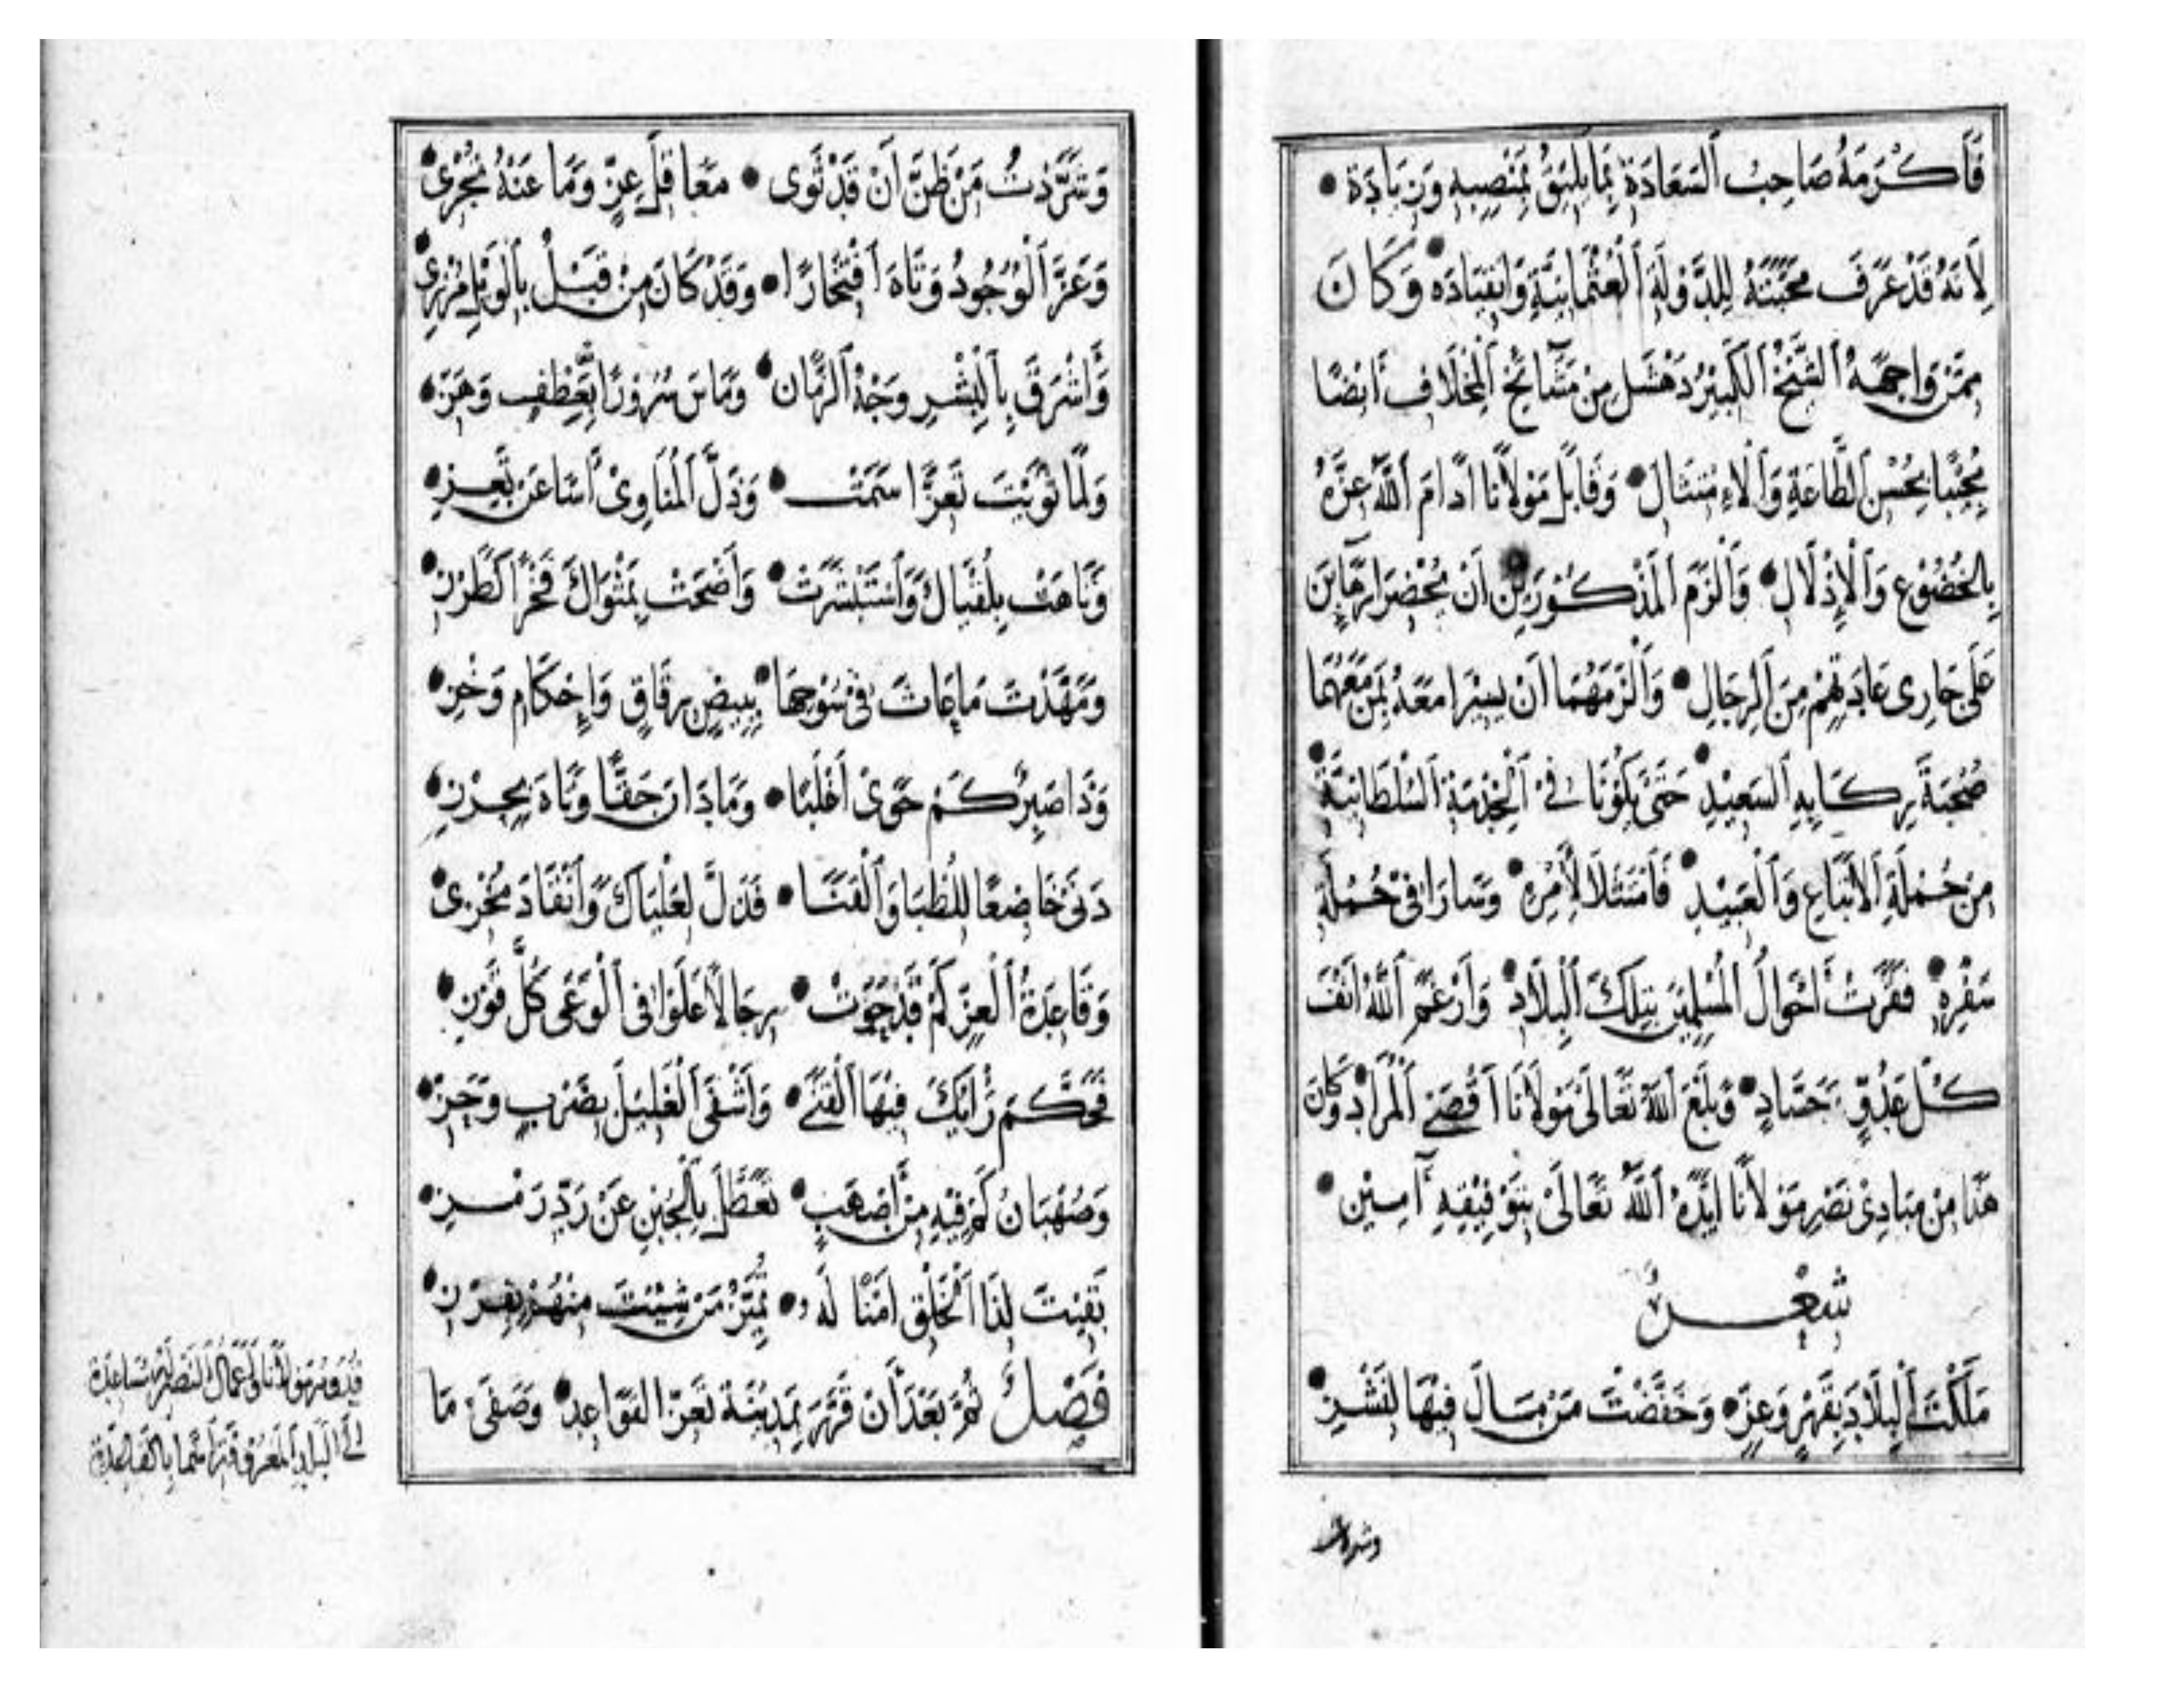 فَأَكْرَمَهُ صَاحِبُ ٱلسَّعَادَةِ بِمَا يَلِيقُ بِمَنْصِبِهِ وَزِيَادَة •
لِأَنَّهُ قَدْ عَرَفَ مَحَبَّتَهُ لِلدَّوْلَةِ ٱلْعُثْمَانِيَّةِ وَٱنْقِيَادَه • وَكَانَ
مِمَّنْ وَاجَهَهُ ٱلشَّيْخُ ٱلْكَبِيرُ دَهْشَل مِنْ مَشَآئِخِ ٱلْمِخْلَافِ أَيْضًا
مُجِيبًا بِحُسْنِ ٱلطَّاعَةِ وَٱلْاِمْتِثَال • وَقَابَلَ مَوْلَانَا أَدَامَ ٱللّٰهُ عِزَّهُ
بِالْخُضُوعِ وَٱلْإِذْلَالِ • وَأَلْزَمَ ٱلْمَذْكُورَيْنِ أَنْ يُحْضِرَا رَهَآئِنَ
عَلَى جَارِى عَادَتِهِمْ مِنَ ٱلرِّجَالِ • وَأَلْزَمَهُمَا أَنْ يَسِيْرَا مَعَهُ بِمَنْ مَعَهُمَا
صُحْبَةَ رِكَابِهِ ٱلسَّعِيْدِ • حَتَّى يَكُوْنَا فِى ٱلْخِدْمَةِ ٱلسُّلْطَانِيَّةِ •
مِنْ جُمْلَةِ ٱلْأَتْبَاعِ وَٱلْعَبِيْدِ • فَامْتَثَلَا لِأَمْرِهِ • وَسَارَا فِىْ جُمْلَةِ
سَفْرِهِ • فَقَرَّتْ أَحْوَالُ ٱلْمُسْلِمِيْنَ بِتِلْكَ ٱلْبِلَادِ • وَأَرْغَمَ ٱللّٰهُ أَنْفَ
كُلِّ عَدُوٍّ وَحَسَّادٍ • وَبَلَّغَ ٱللّٰهُ تَعَالَىٰ مَوْلَانَا أَقْصَى ٱلْمُرَادِ • وَكَانَ
هَذَا مِنْ مَبَادِىْ نَصْرِ مَوْلَانَا أَيَّدَهُ ٱللّٰهُ تَعَالَىٰ بِتَوْفِيْقِهِ آمِيْن •
شِعْرٌ
مَلَكْتَ ٱلْبِلَادَ بِقَهْرٍ وَعِزٍّ • وَخَفَّضْتَ مَنْ سَالَ فِيْهَا لِنَشْزِ •
وشردت
وَشَرَّدْتَ مَنْ ظَنَّ أَنْ قَدْ ثَوَى • مَعَاقِلَ عِزٍّ وَمَا عَنْهُ تُجْزِى •
وَعَزَّ ٱلْوُجُودُ وَتَاهَ ٱفْتِخَارًا • وَقَدْ كَانَ مِنْ قَبْلُ بِالْوَيْلِ مُزْرِى •
وَأَشْرَقَ بِٱلْبِشْرِ وَجْهُ ٱلزَّمَان • وَمَاسَ سُرُورًا بِعِطْفٍ وَهَزِّ •
وَلَمَّا ثَوَيْتَ تَعِزًّا سَمَتْ • وَذَلَّ ٱلْمُنَاوِىْ أَسًا عَنْ تَعِزِّ •
وَتَاهَتْ بِلُقْيَاكَ وَٱسْتَبْشَرَتْ • وَأَضْحَتْ بِمَثْوَاكَ فَخْرًا كَطَرْزِ •
وَمَهَّدْتَ مَا عَاثَ فِىْ سُوْحِهَا • بِبِيْضٍ رِقَاقٍ وَإِحْكَامِ وَخْزِ •
وَذَا صَبِرٌ كَمْ حَوَىٰ أَغْلَبًا • وَمَا دَانَ حَقًّا وَتَاهَ بِحِرْزِ •
دَنَىٰ خَاضِعًا لِلظُّبَا وَٱلْقَنَا • فَذَلَّ لِعَلْيَاكَ وَٱنْقَادَ مُخْزِى •
وَقَاعِدَةُ ٱلْعِزِّ كَمْ قَدْ حَوَتْ • رِجَالًا عَلَوْا فِى ٱلْوَغَى كُلَّ قَوْزِ •
فَحَكَّمَ رَأْيُكَ فِيْهَا ٱلْقَنَىٰ • وَأَشْفَى ٱلْغَلِيْلَ بِضَرْبٍ وَحَزِّ •
وَصُهْبَانُ كَمْ فِيْهِ مِنْ أَصْهَبٍ • تَعَطَّلَ بِٱلْجُبْنِ عَنْ رَدِّ رَمْزِ •
بَقِيْتَ لِذَا ٱلْخَلْقِ أَمْنًا لَهُ • تُمَيِّزُ مَنْ شِئْتَ مِنْهُمْ بِفَرْزِ •
فَصْلٌ ثُمَّ بَعْدَ أَنْ قَرَّرَ بِمَدِيْنَةِ تَعِزّ ٱلْقَوَاعِد • وَصَفَىٰ مَا
قدوم مولانا وأعمال النصر له مساعدة
إلى البلاد المعروفة أسما بالقاعدة